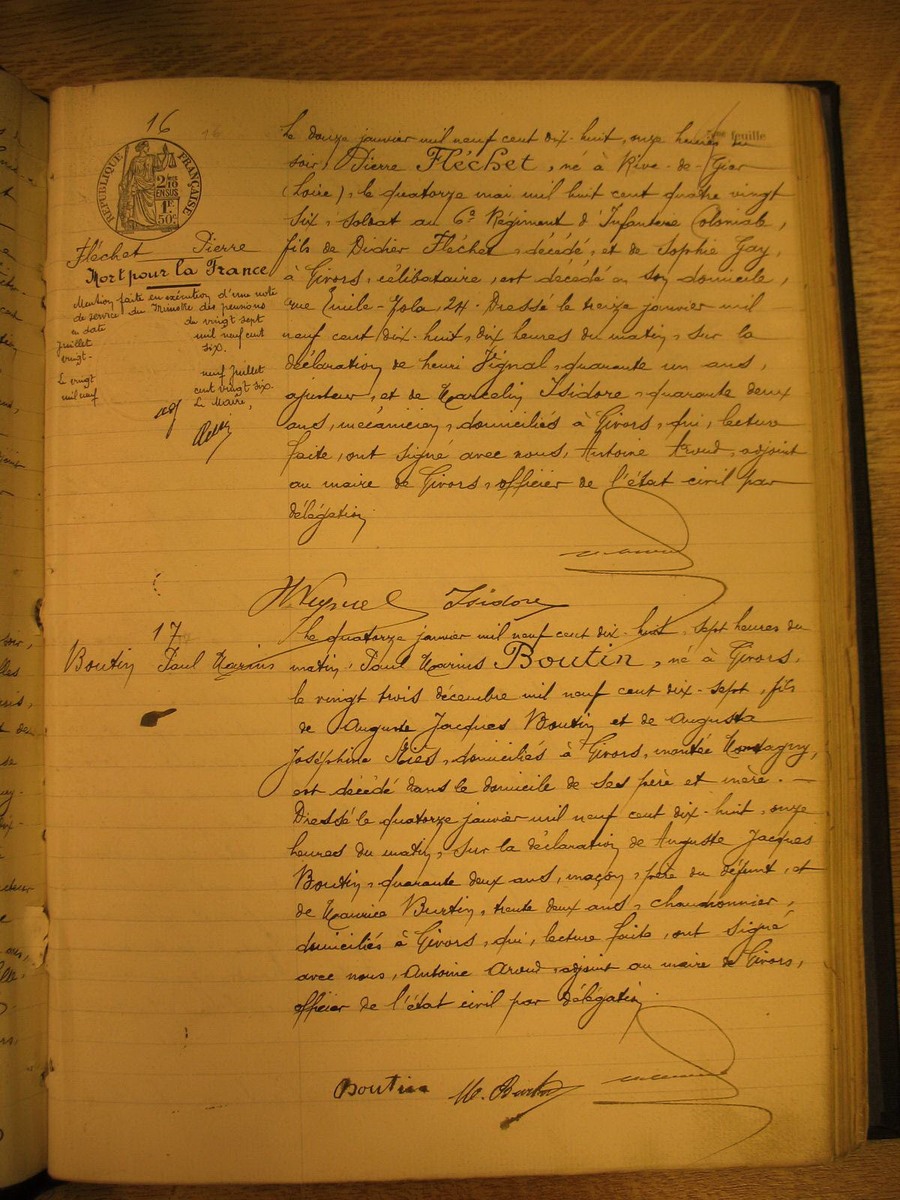 16
5me feuille
RÉPUBLIQUE FRANÇAISE
2/10 EN SUS
1F 50c
Fléchet Pierre
Mort pour la France
Mention faite en exécution d'une note
de service du Ministre des pensions
en date du vingt sept
juillet mil neuf cent
vingt- six.
Le vingt neuf juillet
mil neuf cent vingt six.
Le Maire,
Le douze janvier mil neuf cent dix-huit, onze heures du
soir, Pierre Fléchet, né à Rive-de-Gier
(Loire), le quatorze mai mil huit cent quatre vingt
six, soldat au 6e Régiment d'Infanterie Coloniale,
fils de Didier Fléchet, décédé, et de Sophie Gay,
à Givors, célibataire, est décédé en son domicile,
rue Emile-Zola, 24. Dressé le treize janvier mil
neuf cent dix-huit, dix heures du matin, sur la
déclaration de henri Vignal, quarante un ans,
ajusteur, et de Marcelin Isidore, quarante deux
ans, mécanicien, domiciliés à Givors, qui, lecture
faite, ont signé avec nous, Antoine Aroud, adjoint
au maire de Givors, officier de l'état civil par
délégation
Isidore
17
Boutin Paul Marius
Le quatorze janvier mil neuf cent dix-huit, sept heures du
matin, Paul Marius Boutin, né à Givors,
le vingt trois décembre mil neuf cent dix-sept, fils
de Auguste Jacques Boutin et de Augusta
Joséphine Ries, domiciliés à Givors, montée Montagny,
est décédé dans le domicile de ses père et mère. —
Dressé le quatorze janvier mil neuf cent dix-huit, onze
heures du matin, sur la déclaration de Auguste Jacques
Boutin, quarante deux ans, maçon, père du défunt, et
de Maurice Burtin, trente deux ans, chaudronnier,
domiciliés à Givors, qui, lecture faite, ont signé
avec nous, Antoine Aroud, adjoint au maire de Givors,
officier de l'état civil par délégation
Boutin M. Burtin